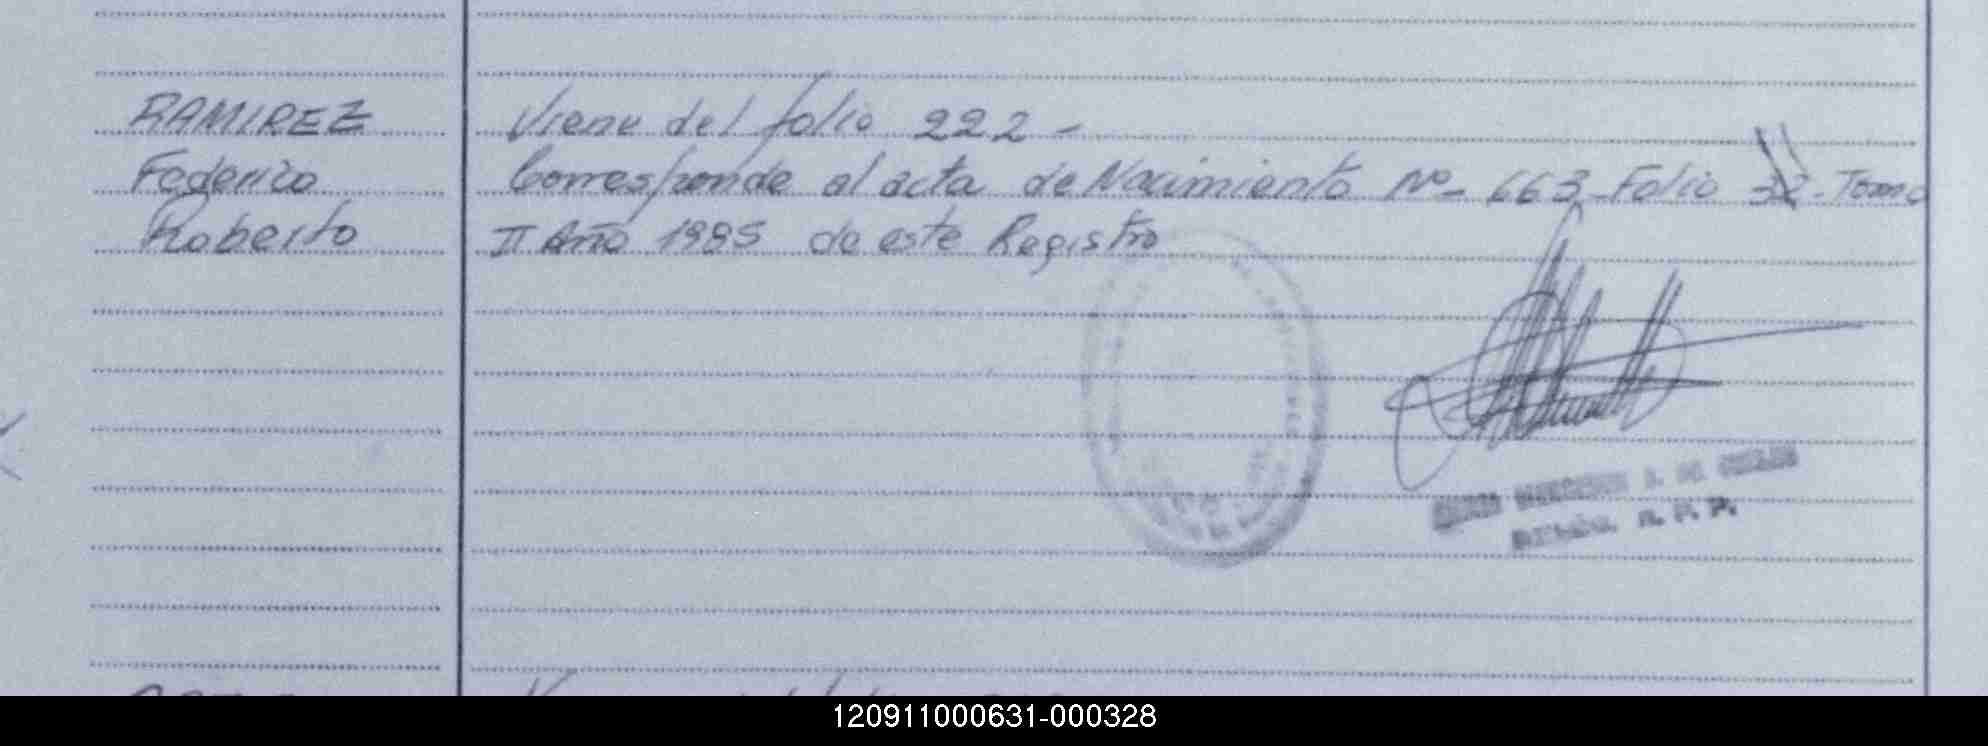 RAMIREZ Viene del folio 222 -
Federico Corresponde al acta de Nacimiento Nº- 663-Folio 32-Tomo
Roberto II Año 1985 de este Registro
120911000631-000328